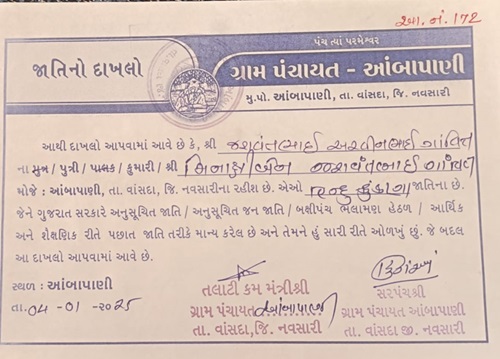 આ.નં. 172
પંચ ત્યાં પરમેશ્વર
જાતિનો દાખલો
ગ્રામ પંચાયત - આંબાપાણી
મુ.પો. આંબાપાણી, તા. વાંસદા, જિ. નવસારી
આથી દાખલો આપવામાં આવે છે કે, શ્રી જશવંતભાઈ
ના પુત્ર / પુત્રી / પાલક / કુમારી / શ્રી જશવંતભાઈ
મોજે : આંબાપાણી, તા. વાંસદા, જિ. નવસારીના રહીશ છે. એઓ હિન્દુ કુંકણા જાતિના છે.
જેને ગુજરાત સરકારે અનુસૂચિત જાતિ / અનુસૂચિત જન જાતિ / બક્ષીપંચ ભલામણ હેઠળ / આર્થિક
અને શૈક્ષણિક રીતે પછાત જાતિ તરીકે માન્ય કરેલ છે અને તેમને હું સારી રીતે ઓળખું છું. જે બદલ
આ દાખલો આપવામાં આવે છે.
સ્થળ : આંબાપાણી
તા. 04 - 01 - 2025
તલાટી કમ મંત્રીશ્રી
ગ્રામ પંચાયત આંબાપાણી
તા. વાંસદા,જિ. નવસારી
સરપંચશ્રી
ગ્રામ પંચાયત આંબાપાણી
તા. વાંસદા જી. નવસારી